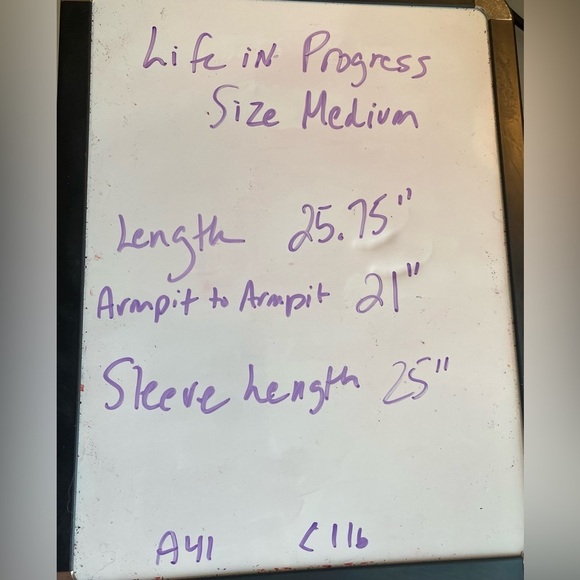 Life in Progress
Size Medium
Length 25.75"
Armpit to Armpit 21"
Sleeve Length 25"
A41 < 1 lb